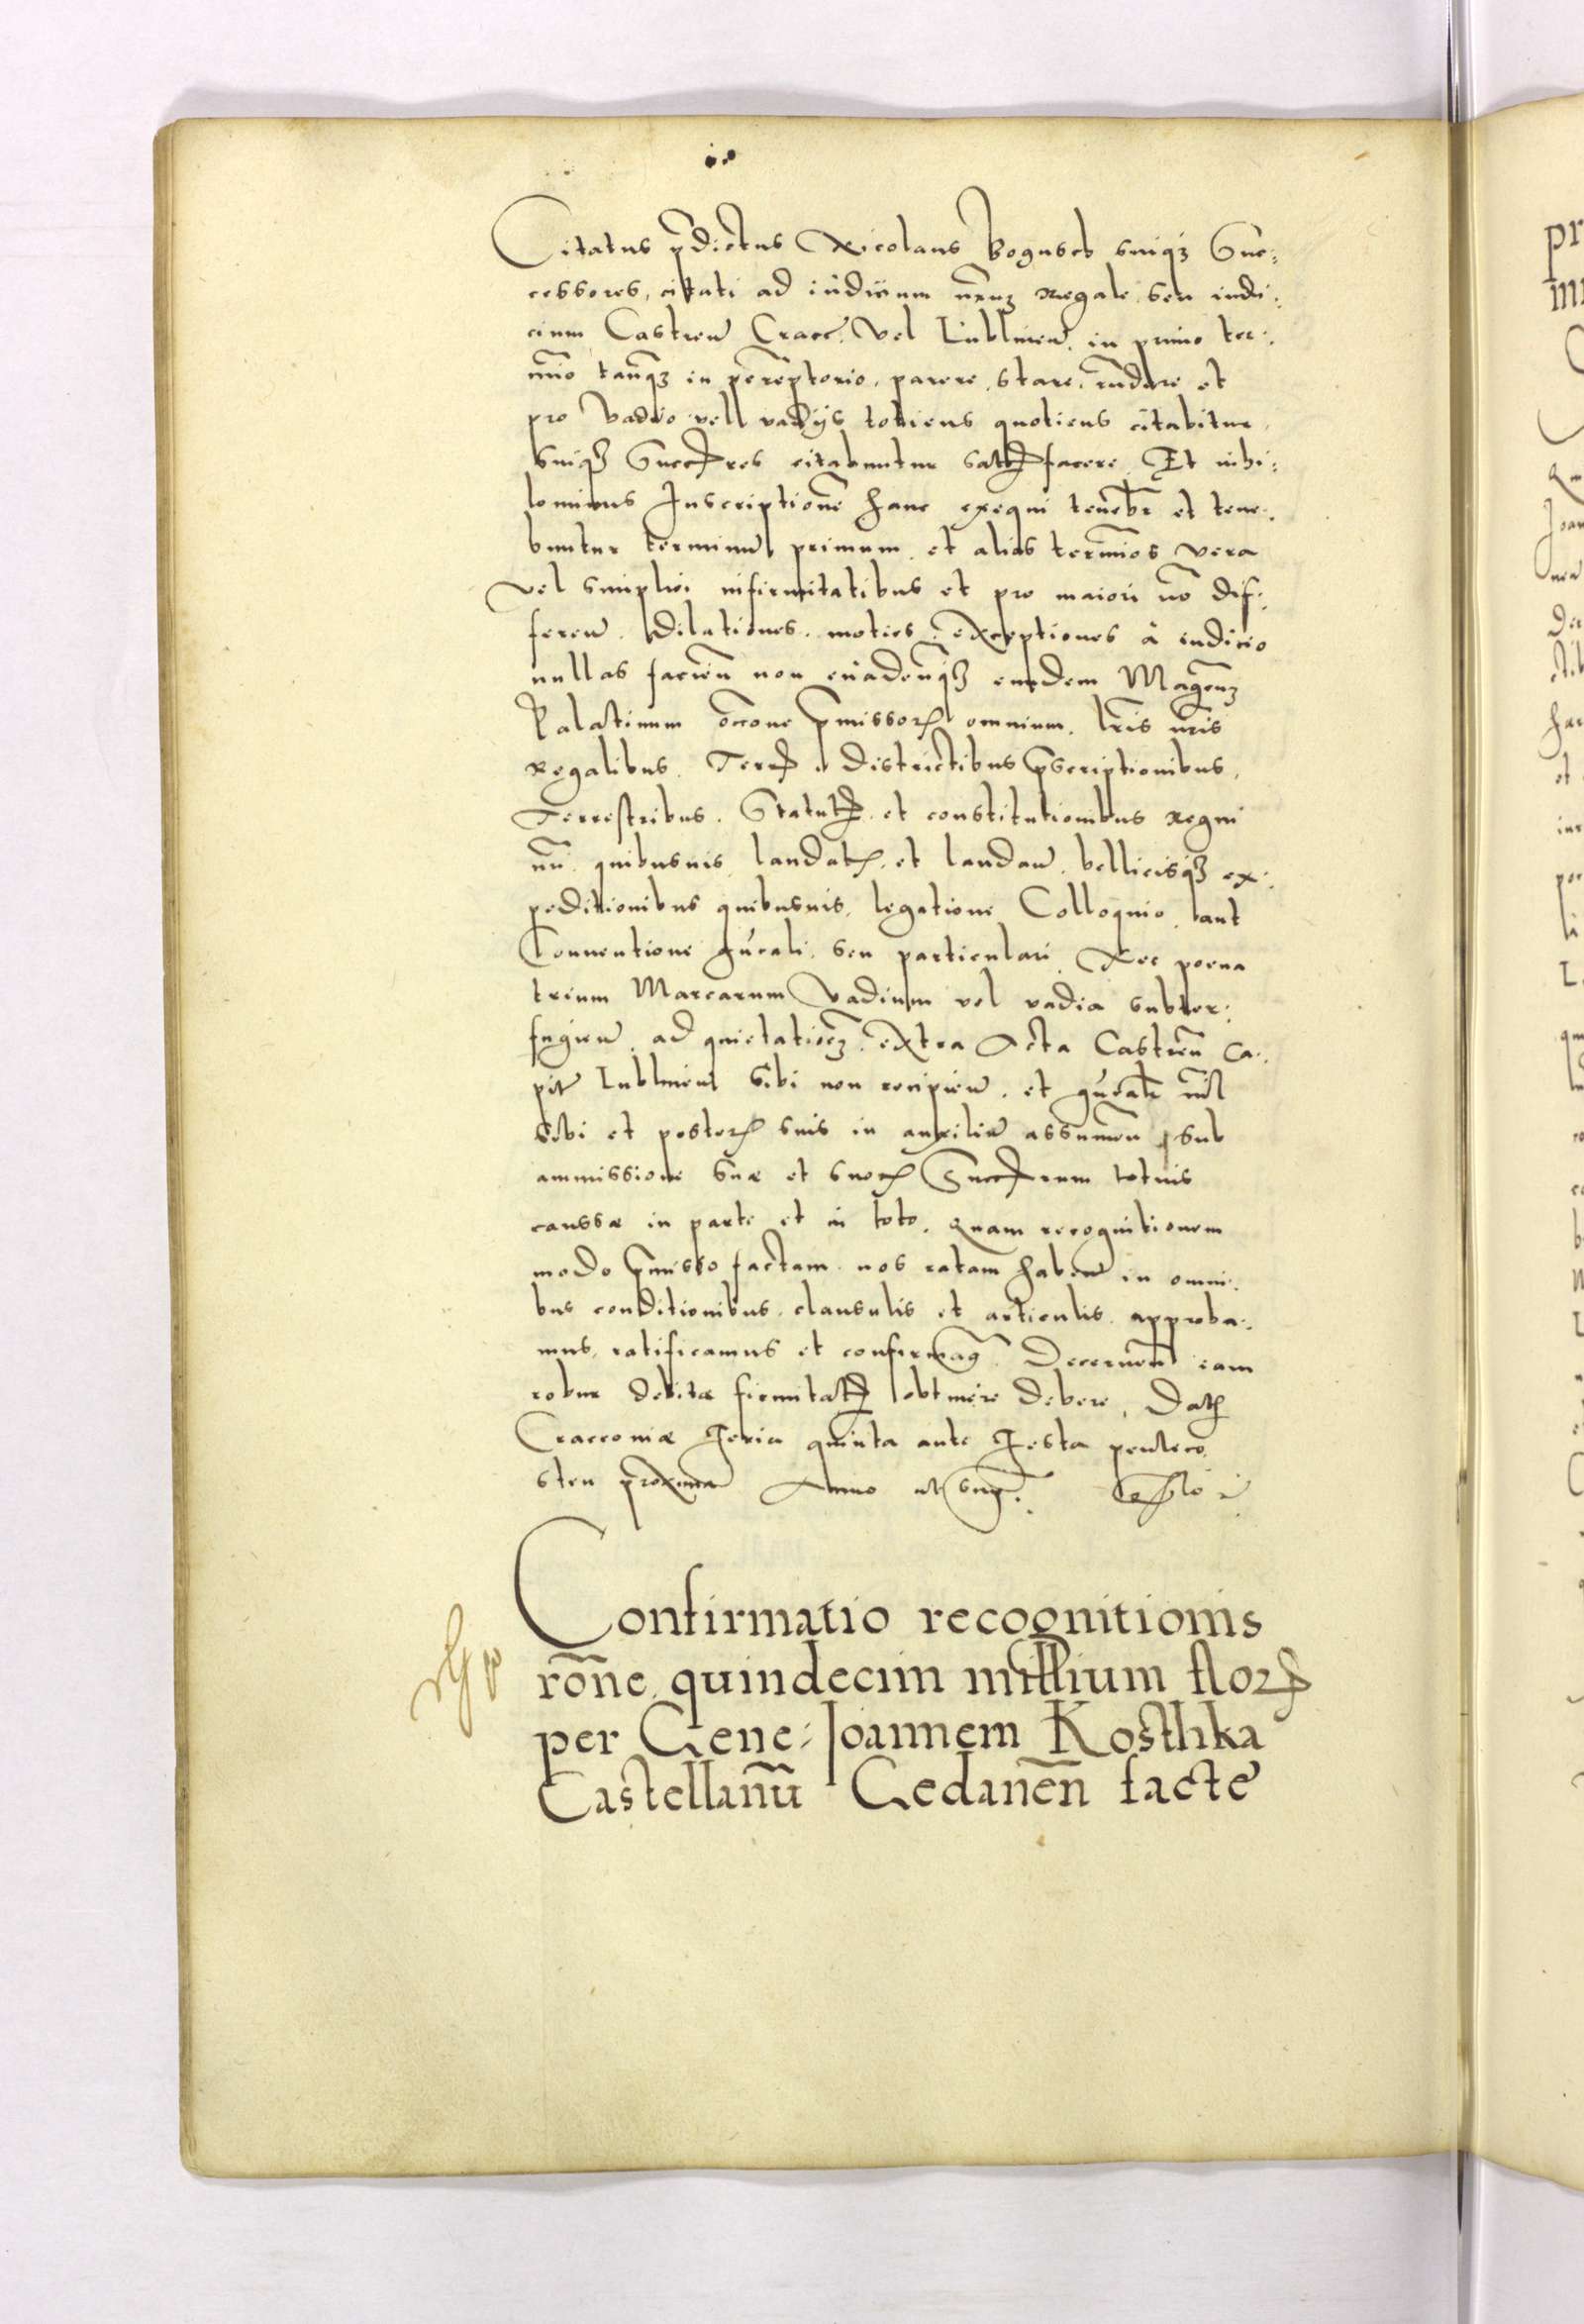 Citatus p̄dictus Nicolaus Bogusch suiqȝ Suc:
cessores, citati ad iudicium nr̄mȝ Regale seu iudi:
cium Castren̄ Cracc. vel Lublinen̄. in primo ter:
mīo tanqȝ in perēptorio, parere, stare, rn̄dere et
pro vadio vell vadijs totiens quotiens citabitur
suiqȝ Succres citabuntur satisfacere. Et nihi:
lominus Inscriptionē hanc exequi tenebr̄ et tene:
buntur terminū primum et alios termīos vera
vel simplici infirmitatibus et pro maiori nō dif:
feren̄. Dilationes. moties. exceptiones à iudicio
nullas facien̄ non euadenqȝ eundem Magcūȝ
Palatinum occone p̄missorꝝ omnium. lr̄is nr̄is
Regalibus. Terr. districtibus p̄scriptionibus,
Terrestribus. Statut. et constitutionibus Regni
nr̄i quibusuis laudat. et laudan̄. bellicisqȝ ex:
peditionibus quibusuis, legatione Colloquio, aut
Conuentione gn̄rali seu particulari. Nec poena
trium Marcarum Vadium vel vadia subter:
fugien̄. ad quietatioēȝ extra Acta Castren̄ Ca:
pit Lublinen̄ sibi non recipien̄. et gn̄ralr̄ nil
sibi et posterꝝ suis in auxiliū assumen̄ sub
ammissione suæ et suorꝝ Succrum totius
caussæ in parte et in toto. Quam recognitionem
modo p̄misso factam nos ratam haben̄ in omni:
bus conditionibus, clausulis et articulis, approba:
mus, ratificamus et confirmaꝰ. Decernen̄ eam
robur debitæ firmitatis obtinere debere. Datꝭ
Cracoviæ Feria quinta ante Festa penteco
sten proxima Anno ut sup.
Confirmatio recognitionis
rōne quindecim millium florꝝ
per Gene: Joannem Kosthka
Castellanū Gedanen̄ facte